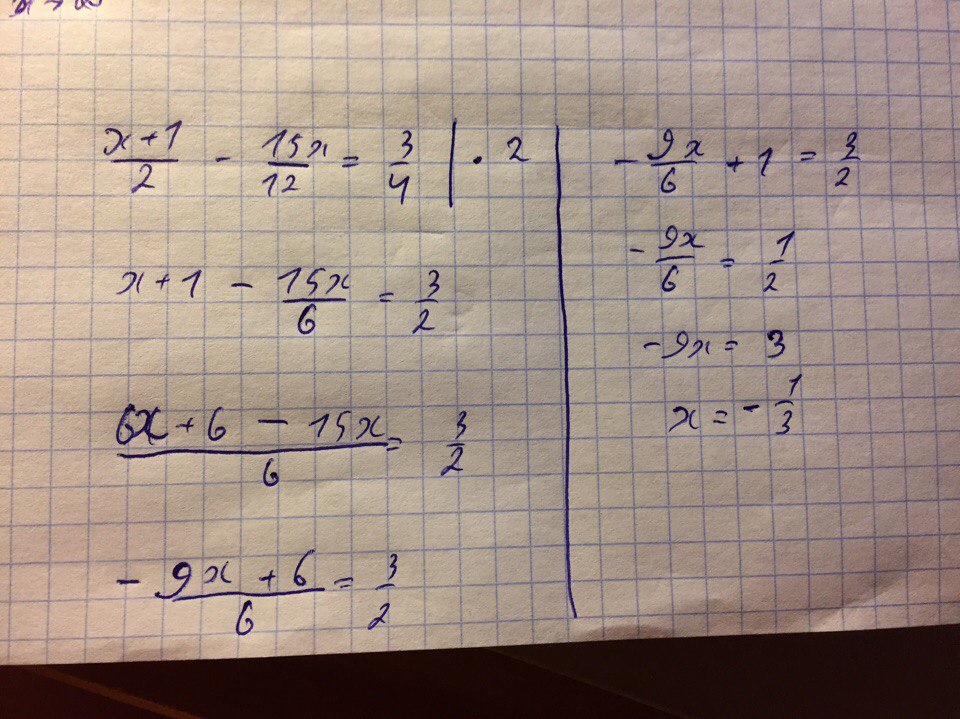 x → ∞
(x+1)/2 - 15x/12 = 3/4 | · 2
x+1 - 15x/6 = 3/2
(6x+6 - 15x)/6 = 3/2
(-9x+6)/6 = 3/2
-9x/6 + 1 = 3/2
-9x/6 = 1/2
-9x = 3
x = -1/3